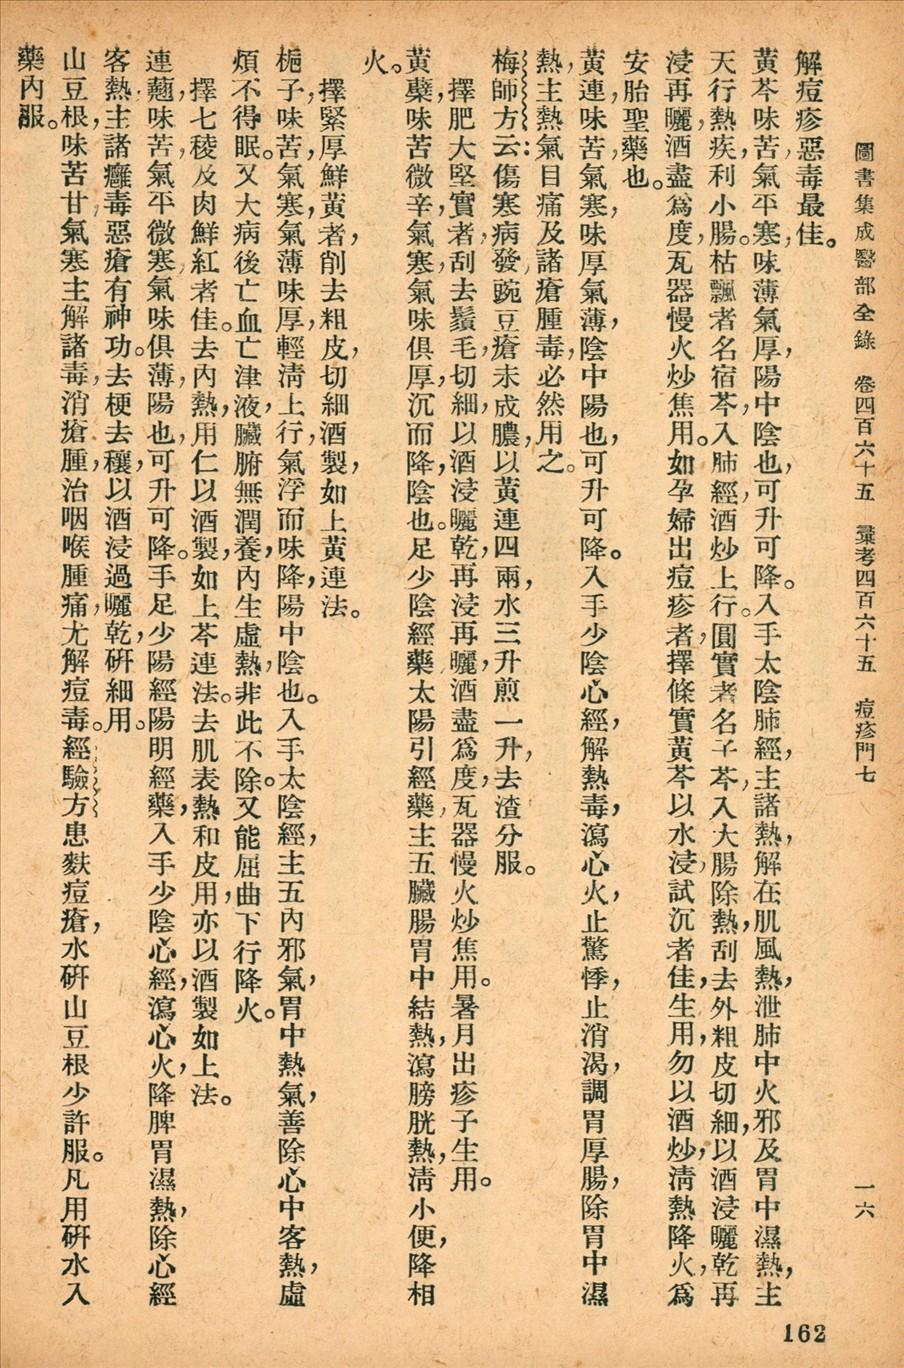 圖書集成醫部全錄　卷四百六十五　彙考四百六十五　痘疹門七　一六
162
解痘疹惡毒最佳。
黃芩味苦，氣平寒，味薄氣厚，陽中陰也，可升可降。入手太陰肺經，主諸熱，解在肌風熱，泄肺中火邪及胃中濕熱，主
天行熱疾，利小腸。枯飄者名宿芩，入肺經，酒炒上行。圓實者名子芩，入大腸除熱，刮去外粗皮切細，以酒浸曬乾再
浸再曬，酒盡爲度，瓦器慢火炒焦用。如孕婦出痘疹者，擇條實黃芩以水浸，試沉者佳，生用，勿以酒炒，淸熱降火，爲
安胎聖藥也。
黃連，味苦，氣寒，味厚氣薄，陰中陽也，可升可降。入手少陰心經，解熱毒，瀉心火，止驚悸，止消渴，調胃厚腸，除胃中濕
熱，主熱氣目痛及諸瘡腫毒，必然用之。
梅師方云：傷寒病發豌豆瘡未成膿，以黃連四兩，水三升煎一升，去渣分服。
擇肥大堅實者，刮去鬚毛，切細，以酒浸曬乾，再浸再曬，酒盡爲度，瓦器慢火炒焦用。暑月出疹子生用。
黃蘗，味苦微辛，氣寒，氣味俱厚，沉而降，陰也。足少陰經藥，太陽引經藥，主五臟腸胃中結熱，瀉膀胱熱，淸小便，降相
火。
擇緊厚鮮黃者，削去粗皮，切細酒製，如上黃連法。
梔子，味苦，氣寒，氣薄味厚，輕淸上行，氣浮而味降，陽中陰也。入手太陰經，主五內邪氣，胃中熱氣，善除心中客熱，虛
煩不得眠。又大病後亡血亡津液，臟腑無潤養，內生虛熱，非此不除。又能屈曲下行降火。
擇七稜及肉鮮紅者佳。去內熱，用仁以酒製，如上芩連法。去肌表熱和皮用，亦以酒製如上法。
連翹，味苦，氣平微寒，氣味俱薄，陽也，可升可降。手足少陽經陽明經藥，入手少陰心經，瀉心火，降脾胃濕熱，除心經
客熱，主諸癰毒惡瘡有神功。去梗去穰，以酒浸過曬乾，硏細用。
山豆根，味苦甘，氣寒，主解諸毒，消瘡腫，治咽喉腫痛，尤解痘毒。經驗方患麩痘瘡，水硏山豆根少許服。凡用硏水入
藥內服。